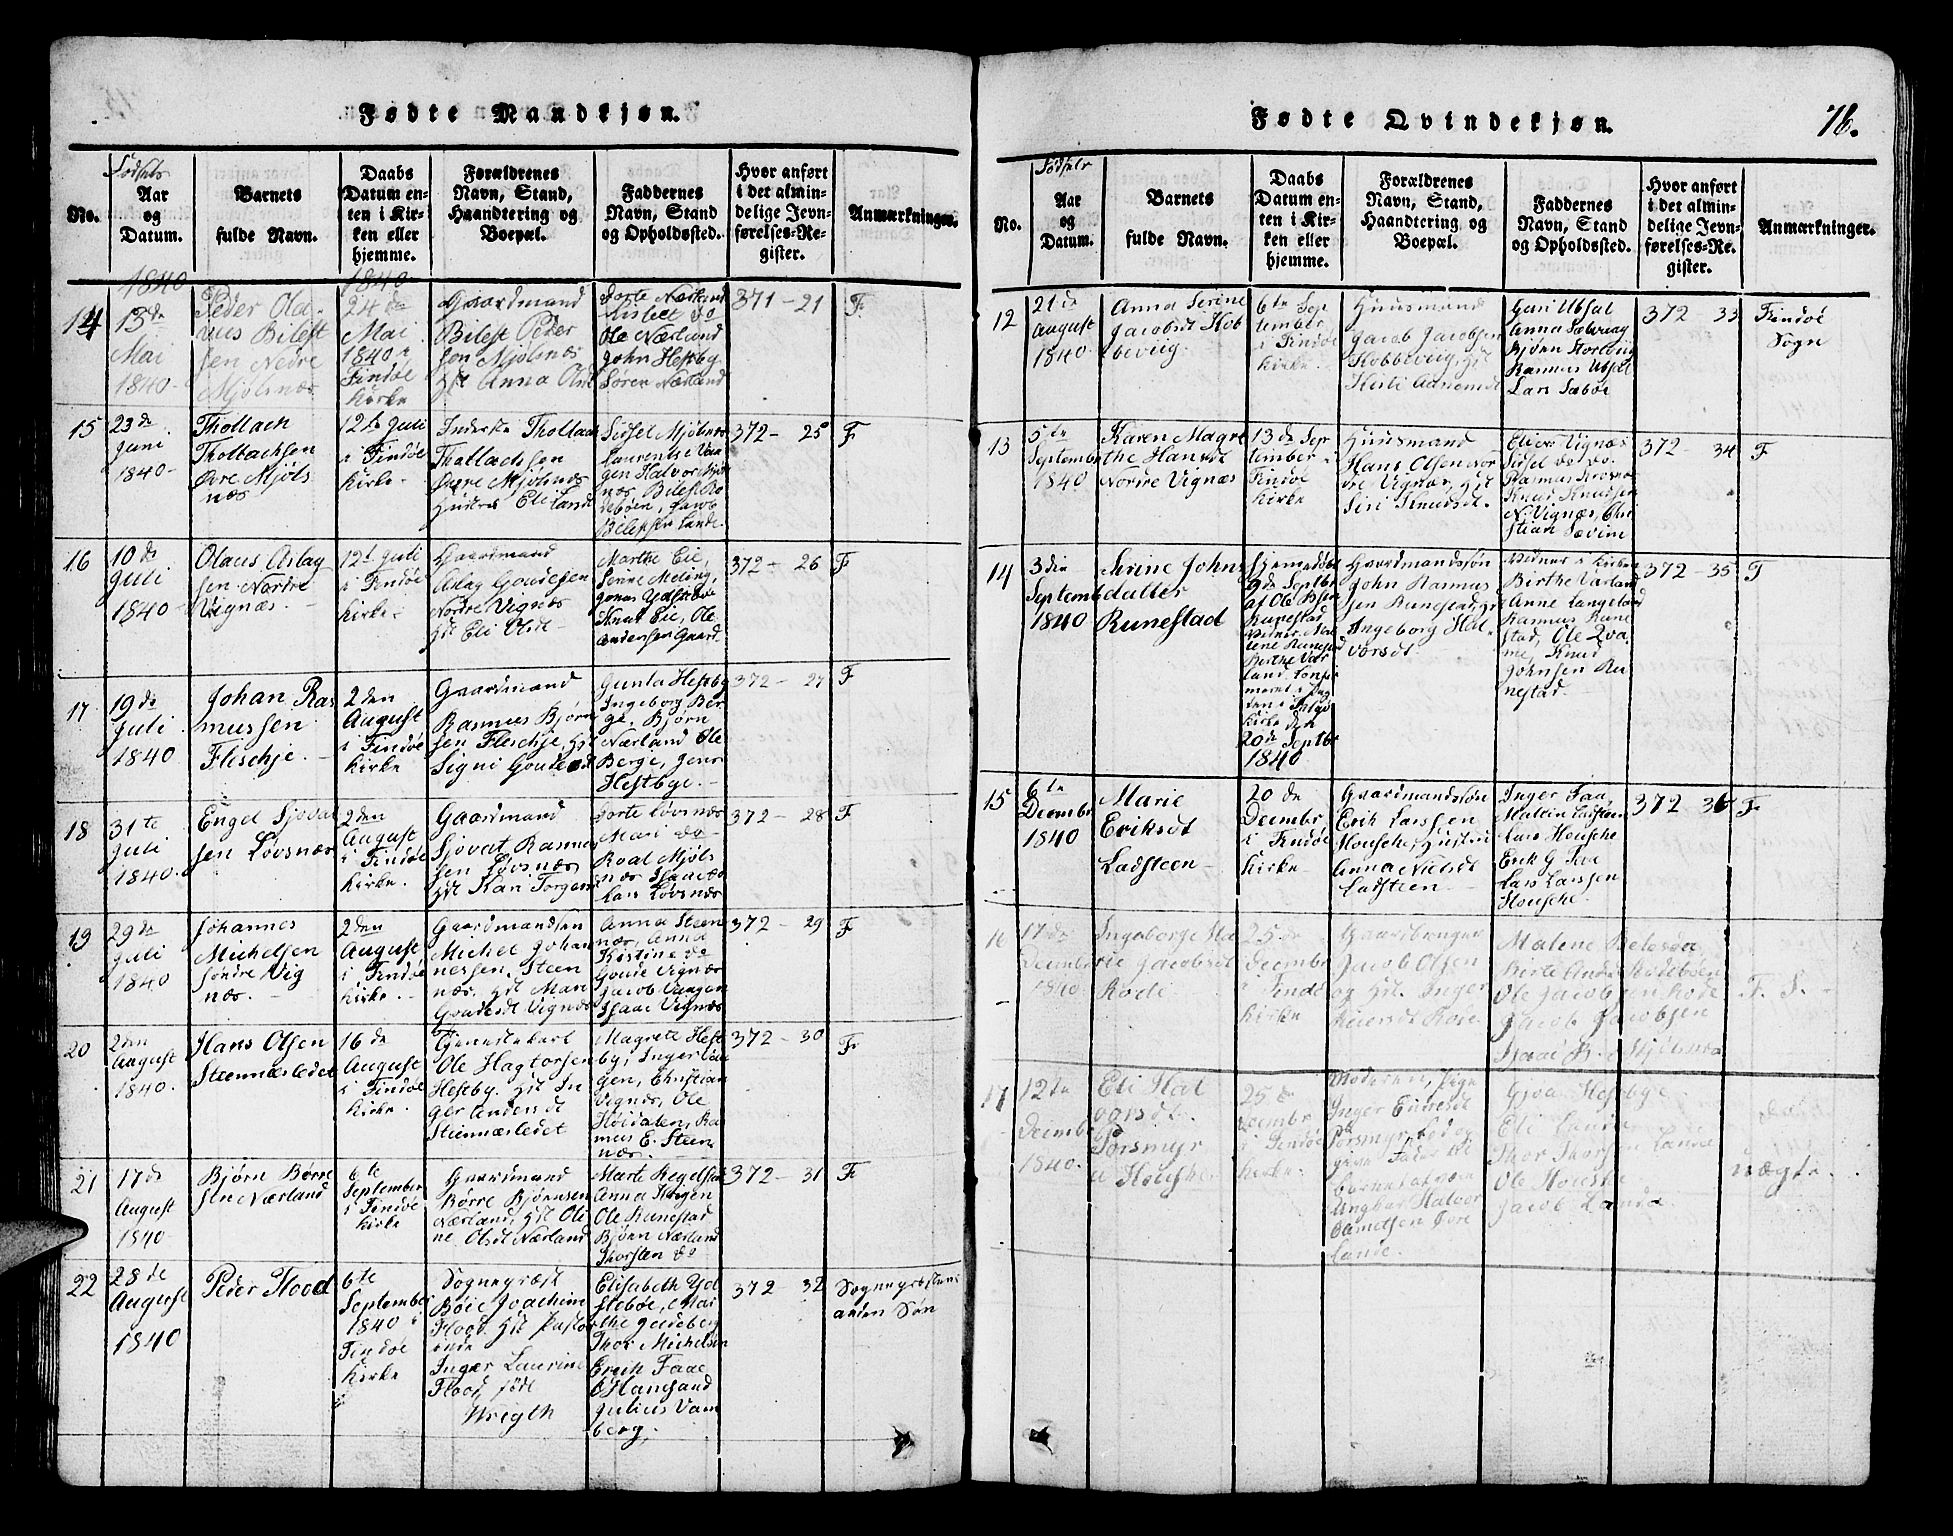 Fødte Mandkjøn.
No.
Fødsels
Aar
og
Datum.
Barnets
fulde Navn.
Daabs
Datum en-
ten i Kir-
ken eller
hjemme.
Forældrenes
Navn, Stand,
Haandtering og
Boepæl.
Faddernes
Navn, Stand
og Opholdssted.
Hvor anført
i det almin-
delige Jevn-
førelses-Re-
gister.
Anmærkninger.
14
1840
13de
Mai
1840
Peder Ola-
us Bilest
sen Nedre
Mjølsnæs
1840
24de
Mai
1840 i
Findøe
Kirke
Gaardmand
Bilest Peder
sen Mjølsnæs
Hst Anna Olsdt
Dorte Nærland
Lisbet do
Ole Nærland
John Hestby
Søren Nærland
371 - 21
F.
15
23de
Juni
1840
Thollach
Thollachsen
Øvre Mjøls
næs
12te Juli
i Findøe
Kirke
Inderste Thollach
Thollachsen
Øvre Mjølsnæs
372 - 25
F
16
10de
Juli
1840
Olaus Aslag
sen Nordre
Vignæs.
12te Juli
i Findøe
Kirke.
Gaardmand
Aslag Goudesen
Nordre Vignæs
Hst Eli Olsdt
Marthe Eie,
Jonas Ydstebøe
Knut Eie, Ole
Andersen Gaard.
372 - 26
F
17
19de
Juli
1840
Johan Ras
mussen
Fleschje
2den
August
i Findøe
Kirke
Gaardmand
Rasmus Bjørn
sen Fleschje, Hst
Signi Goudesdt
Gunla Hestby
Ingeborg Ber
ge, Bjørn
Nærland Ole
Berge, Jens
Hestbye.
372 - 27
F
18
31te
Juli
1840
Engel Sjovat
sen Løvsnæs
2den
August
i Findøe
Kirke.
Gaardmand
Sjovat Rasmus
sen Løvsnæs
Hst Kari Torgers
Dorte Løvsnæs
Mari do
Roal Mjøls
næs
Løvsnæs
372 - 28
F
19
29de
Juli
1840
Johannes
Michelsen
søndre Vig
næs.
2den
August
i Findøe
Kirke.
Gaardmandsøn
Michel Johan
nessen, Steen
næs, Hst Mari
Goudesdt Vignæs
Anna Steen
næs, Anna
Kistine do
Goude Vignæs
Jacob Vaagen
Isaac Vignæs
372 - 29
F
20
2den
August
1840.
Hans Olsen
Steennæsledet
16de
August
i Findøe
Kirke.
Tjenestekarl
Ole Hagtorsen
Hestby. Hst In
ger Andersdt
Steennæsledet
Magrete Hest
by, Inger Vaa
gen, Christian
Vignæs, Ole
Høidalen, Ras
mus E. Steen
næs.
372 - 30
F
21
17de
August
1840
Bjørn Børre
sen Nærland
6te
September
i Findøe
Kirke
Gaardmand
Børre Bjørnsen
Nærland, Hst Ole
ne Olsdt Nærland
Marte Regelstad
Anna Hagen
Ole Runestad
Bjørn Nærland
Thorsten do
372 - 31
F
22
28de
August
1840
Peder Flood
6te
September
1840 i
Findøe
Kirke
Sognepræst
Bøie Joachim
Flood. Hst Pastor
inde
Inger Laurine
Flood, født
Wregth
Elisabeth Yd
stebøe, Mar
the Judeberg
Thor Michelsen
Erich Faae
Julius Vam
berg.
372 32
Sognepræstens
anden Søn
Fødte Qvindekjøn.
76.
No.
Fødsels
Aar
og
Datum.
Barnets
fulde Navn.
Daabs
Datum en-
ten i Kir-
ken eller
hjemme.
Forældrenes
Navn, Stand,
Haandtering og
Boepæl.
Faddernes
Navn, Stand
og Opholdssted.
Hvor anført
i det almin-
delige Jevn-
førelses-Re-
gister.
Anmærkninger.
12
21de
August
1840
Anna Serine
Jacobsdt Kob
beviig.
6te Sep
tember
i Findøe
Kirke.
Huusmand
Jacob Jacobsen
Kobbeviig, Hst
Guri Ubsal
Anna Salviag
Bjørn Storviig
Rasmus Ubsal
Lars Sæbøe
372 33
Findøe
Sogn
13
5te
September
1840
Karen Magre
the Hansdt
Nordre Vignæs
13de Sep
tember i
Findøe
Kirke
Huusmand
Hans Olsen Nor
dre Vignæs, Hst
Siri Knudsdt.
Vignæs
Sidsel do do.
Knud Knudsen
N. Vignæs, Chri
stian Sævim
372 - 34
F
14
3die
Septemb
1840
Serine Johns
datter
Runestad
Hjemmedøbt
9de Septbr
af Ole Bjsen
Runestad
Kirke den
20de Septbr
1840
Gaardmandssøn
John Rasmus
sen Runestad, Hst
Ingeborg Hal
vorsdt.
Vidner i Kirken
Birthe Varland
Anne Langeland
Rasmus Rune
stad, Ole Qva
me, Knud
Johnsen Ru
nestad
372 - 35
F
15
6te
Decembr
1840
Marie
Eriksdt
Ladsteen
20de
Decembr
i Findøe
Kirke
Gaardmandssøn
Erik Larssen
Housche, Hustru
Anna Nielsdt
Ladsteen
Inger Faa,
Malvin Ladsteen
Lars Housche
Erik G Faa
Lars Larssen
Housche.
372 36
F
16
17de
Decembr
1840
Ingeborge Ma
rie Jacobsdt
Rode
25de
Decembr
i Findøe
Kirke
Gaardbruger
Jacob Olsen
og Hst. Inger
Malene
Ole Jacobsen Rode
Jacob Jacobsen
F. S.
17
12te
Decembr
1840.
Eli Hal
vorsdt.
Torsmyr
25de
Decembr
i Findøe
Kirke.
Moderen, Pige
Torsmyr
Fader til
barnet at være
Ungkar Halvor
Lande.
Gjoa Hestbye
Eli Lande
Thor Thorsen Lande
Ole Houske
Jacob Lande
uægte.